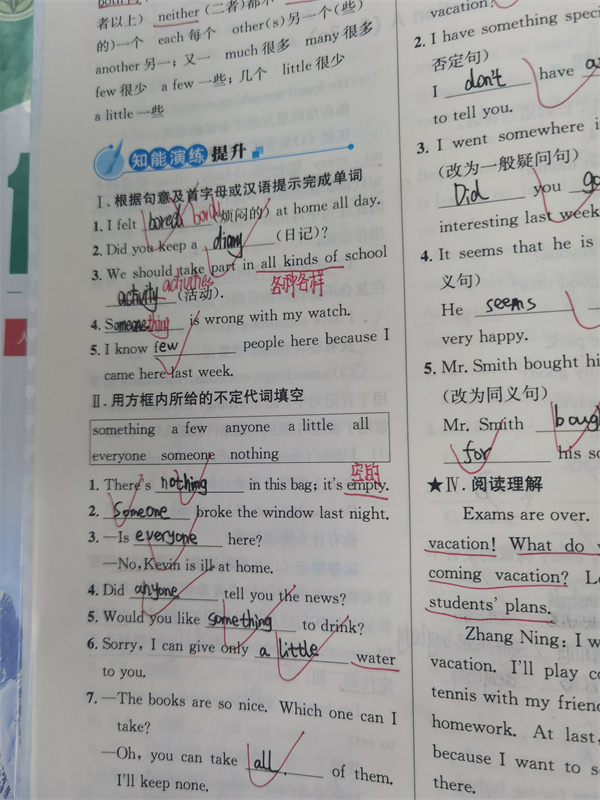 者以上) neither (二者)都不
的)一个 each 每个 other(s)另一个(些)
another 另一；又一 much 很多 many 很多
few 很少 a few 一些；几个 little 很少
a little 一些
知能演练 提升
Ⅰ. 根据句意及首字母或汉语提示完成单词
1. I felt bored (烦闷的) at home all day.
2. Did you keep a diary (日记)?
3. We should take part in all kinds of school
activities
各种各样
activity (活动).
4. Someone thing is wrong with my watch.
5. I know few people here because I
came here last week.
Ⅱ. 用方框内所给的不定代词填空
something a few anyone a little all
everyone someone nothing
空的
1. There's nothing in this bag; it's empty.
2. Someone broke the window last night.
3. —Is everyone here?
—No, Kevin is ill at home.
4. Did anyone tell you the news?
5. Would you like something to drink?
6. Sorry, I can give only a little water
to you.
7. —The books are so nice. Which one can I
take?
—Oh, you can take all. of them.
I'll keep none.
vacation?
2. I have something speci
否定句)
I don't have
to tell you.
3. I went somewhere i
(改为一般疑问句)
Did you go
interesting last week
4. It seems that he is
义句)
He seems
very happy.
5. Mr. Smith bought hi
(改为同义句)
Mr. Smith boug
for his so
★Ⅳ. 阅读理解
Exams are over.
vacation! What do
coming vacation?
students' plans.
Zhang Ning: I w
vacation. I'll play c
tennis with my frien
homework. At last,
because I want to s
there.